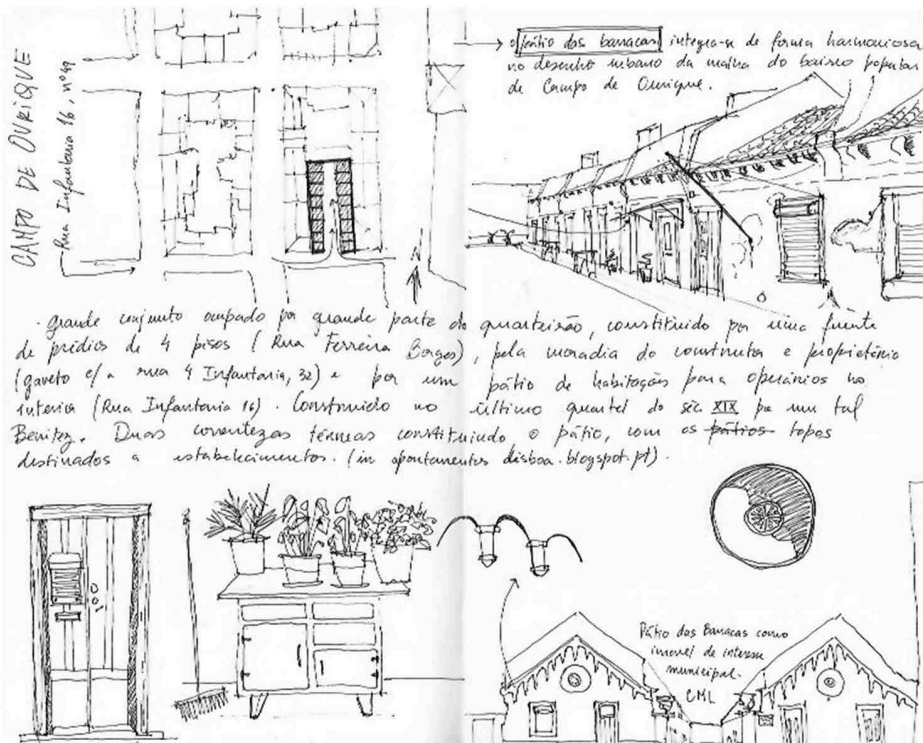 CAMPO DE OURIQUE
Rua Infantaria 16, nº 49
o pátio das barracas integra-se de forma harmoniosa
no desenho urbano da malha do bairro popular
de Campo de Ourique.
. grande conjunto ocupado por grande parte do quarteirão, constituído por uma frente
de prédios de 4 pisos (Rua Ferreira Borges), pela moradia do construtor e proprietário
(gaveto c/ a rua 4 Infantaria, 32) e por um pátio de habitações para operários no
interior (Rua Infantaria 16). Construído no último quartel do séc XIX por um tal
Benitez. Duas correntezas térreas constituindo o pátio, com os pátios topos
destinados a estabelecimentos. (in apontamentos lisboa.blogspot.pt).
Pátio das Barracas como
imóvel de interesse
municipal.
CML